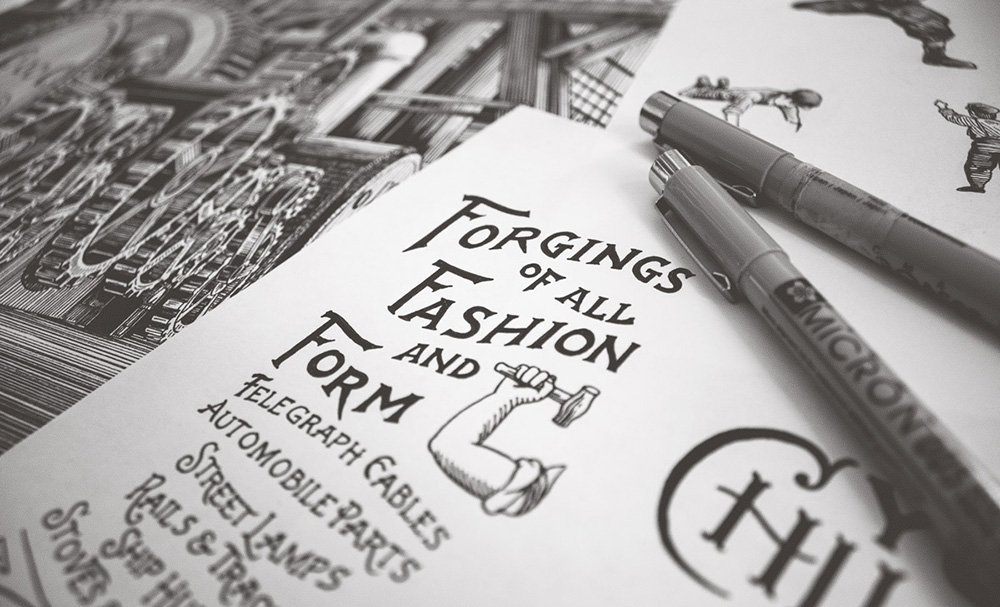 FORGINGS
OF ALL
FASHION
AND
FORM
TELEGRAPH CABLES
AUTOMOBILE PARTS
STREET LAMPS
RAILS &
SHIP
STOVES
MICRON